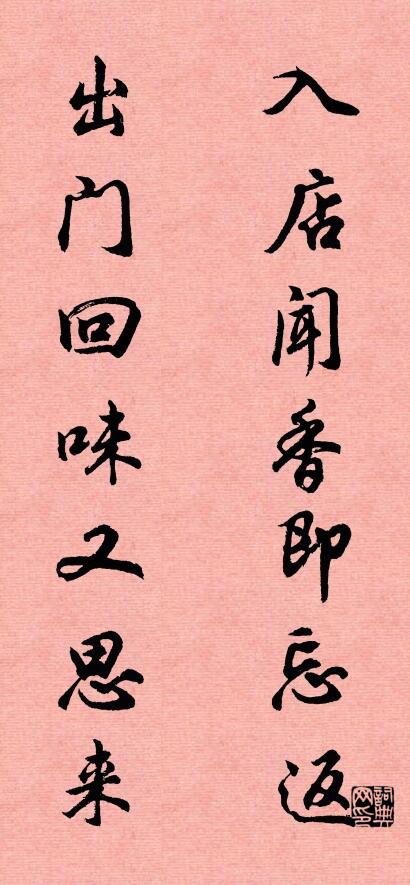 入店闻香即忘返
出门回味又思来
詞典网印